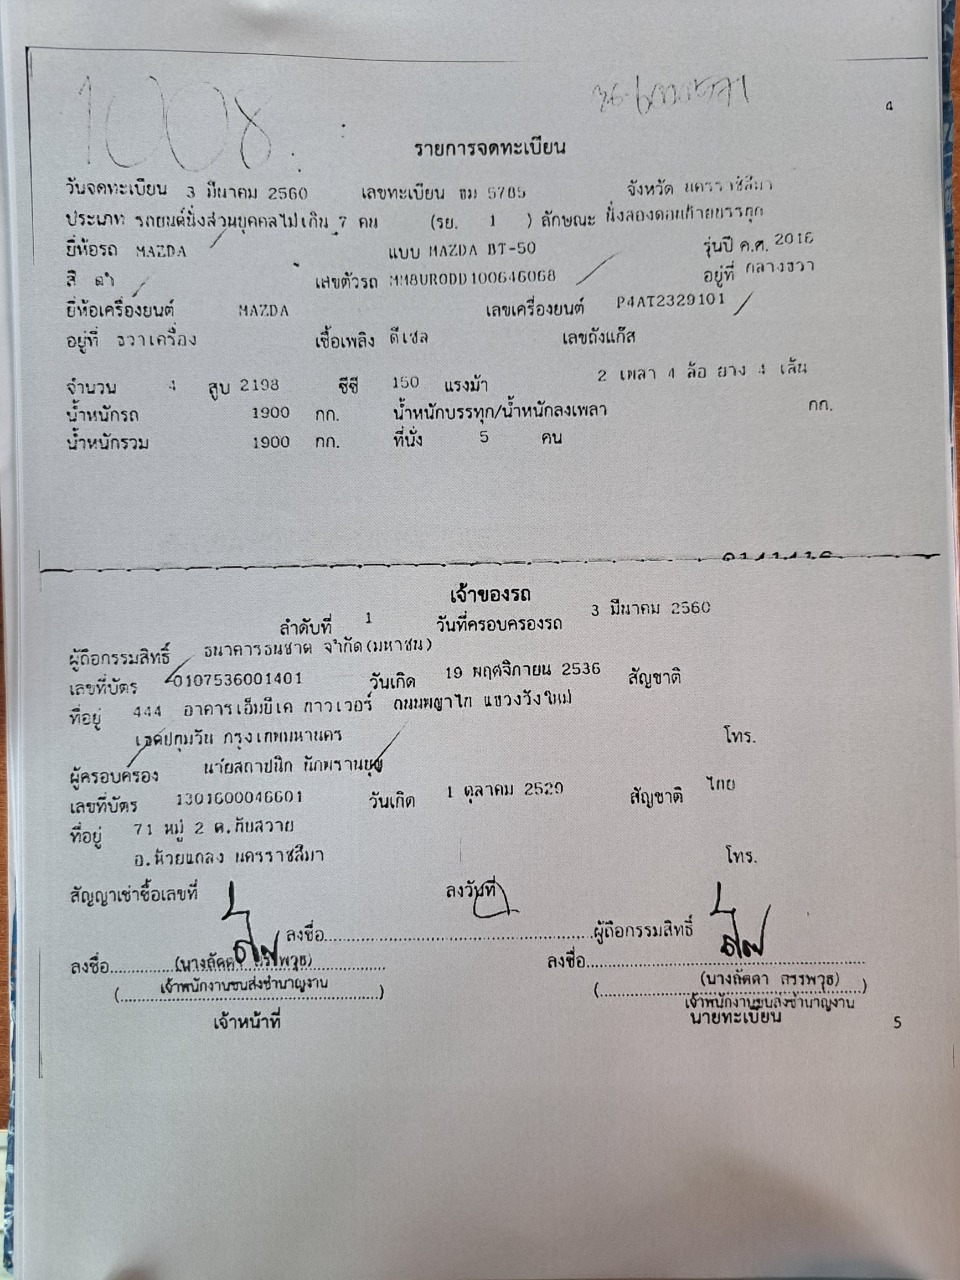 1008
4
รายการจดทะเบียน
วันจดทะเบียน 3 มีนาคม 2560 เลขทะเบียน ขม 5785 จังหวัด นครราชสีมา
ประเภท รถยนต์นั่งส่วนบุคคลไม่เกิน 7 คน (รย. 1 ) ลักษณะ นั่งสองตอนท้ายบรรทุก
ยี่ห้อรถ MAZDA แบบ MAZDA BT-50 รุ่นปี ค.ศ. 2016
สี ดำ เลขตัวรถ MM8UR0DD100646068 อยู่ที่ กลางขวา
ยี่ห้อเครื่องยนต์ MAZDA เลขเครื่องยนต์ P4AT2329101
อยู่ที่ ขวาเครื่อง เชื้อเพลิง ดีเซล เลขถังแก๊ส
จำนวน 4 สูบ 2198 ซีซี 150 แรงม้า 2 เพลา 4 ล้อ ยาง 4 เส้น
น้ำหนักรถ 1900 กก. น้ำหนักบรรทุก/น้ำหนักลงเพลา กก.
น้ำหนักรวม 1900 กก. ที่นั่ง 5 คน
เจ้าของรถ
ลำดับที่ 1 วันที่ครอบครองรถ 3 มีนาคม 2560
ผู้ถือกรรมสิทธิ์ ธนาคารธนชาต จำกัด(มหาชน)
เลขที่บัตร 0107536001401 วันเกิด 19 พฤศจิกายน 2536 สัญชาติ
ที่อยู่ 444 อาคารเอ็มบีเค ทาวเวอร์ ถนนพญาไท แขวงวังใหม่
เขตปทุมวัน กรุงเทพมหานคร โทร.
ผู้ครอบครอง นายสถาปนิก นักพรานบุญ
เลขที่บัตร 1301600046601 วันเกิด 1 ตุลาคม 2529 สัญชาติ ไทย
ที่อยู่ 71 หมู่ 2 ต.ทับสวาย
อ.ห้วยแถลง นครราชสีมา โทร.
สัญญาเช่าซื้อเลขที่ ลงวันที่
ลงชื่อ ผู้ถือกรรมสิทธิ์
ลงชื่อ ลงชื่อ
(นางลัดดา สรรพวุธ) (นางลัดดา สรรพวุธ)
เจ้าพนักงานขนส่งชำนาญงาน เจ้าพนักงานขนส่งชำนาญงาน
เจ้าหน้าที่ นายทะเบียน
5